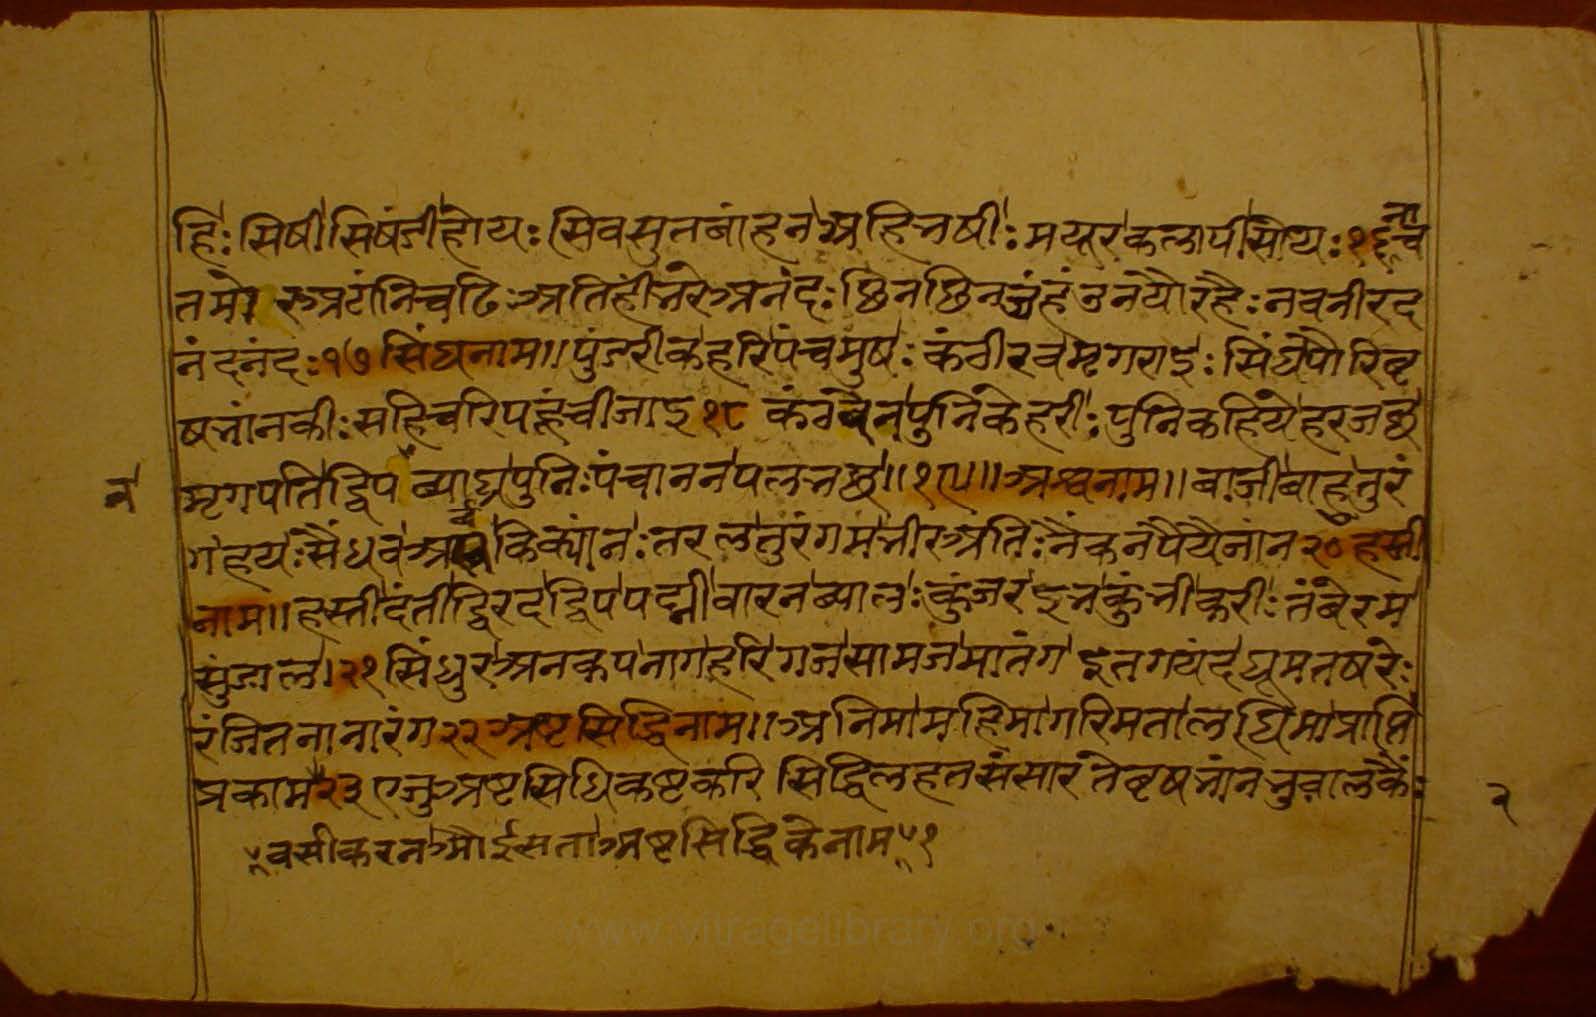 हिः सिषी सिषंडी होयः सिव सुत बांहन अहि भषीः मयूर कलापी सोयः १६ ना च
त मो रु अटांनि चढिः अति ही भरे अनंदः छिन छिन ज्यूं हं उनयौ रहैः नव नीरद
नंद नंदः १७ सिंघ नाम ॥ पुंडरीक हरि पंच मुषः कंठीरव मृगराइः सिंघ पौरि बृ
षभांन कीः सहचरि पहूंची जाइ १८ पुनि केहरीः पुनि कहिये हरजछ
मृगपति द्विप व्याघ्र पुनिः पंचानन पलभछ ॥ १९ ॥ अश्व नाम ॥ वाजी वाह तुरं
ग हयः सैंधव अर्व किक्यांनः तरल तुरंगम भीर अतिः नैंक न पैये जांन २० हस्ती
नाम ॥ हस्ती दंती द्विरद द्विप पद्मी वारन ब्यालः कुंजर इभ कुंभी करीः तंबेरम
सुंडाल । २१ सिंधुर अनकप नाग हरि गज सामज मातंग इत गयंद घूमत षरेः
रंजित नाना रंग २२ अष्ट सिद्धि नाम ॥ अनिमा महिमा गरिमता लघिमा प्राप्ति
प्रकाम २३ ए जु अष्ट सिधि कष्ट करि सिद्धि लहत संसार ते बृषभांन भुवाल कैंः
वसीकरन औ ईसता अष्ट सिद्धि के नाम १
२